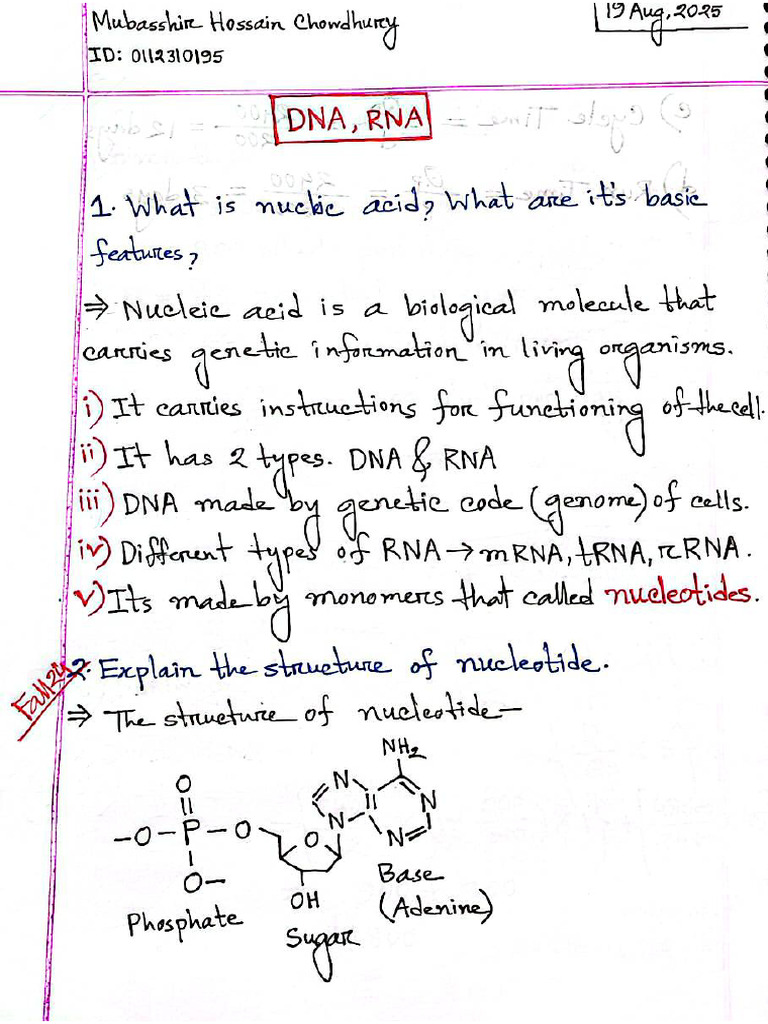 Mubasshir Hossain Chowdhury
19 Aug, 2025
ID: 0112310195
DNA, RNA
1. What is nucleic acid? What are it's basic
features?
⇒ Nucleic acid is a biological molecule that
carries genetic information in living organisms.
i) It carries instructions for functioning of the cell.
ii) It has 2 types. DNA & RNA
iii) DNA made by genetic code (genome) of cells.
iv) Different types of RNA → mRNA, tRNA, rRNA.
v) Its made by monomers that called nucleotides.
Fall 24
2. Explain the structure of nucleotide.
⇒ The structure of nucleotide—
NH2
O
N
N
N
N
-O-P-O
O
O-
OH
Phosphate
Sugar
Base
(Adenine)